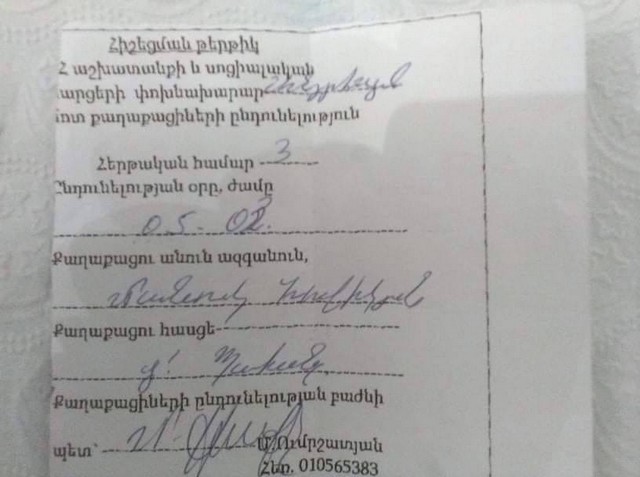 Հիշեցման թերթիկ
Հ աշխատանքի և սոցիալական
արցերի փոխնախարար
մոտ քաղաքացիների ընդունելություն
Հերթական համար 3
Ընդունելության օրը, ժամը
05. 03.
Քաղաքացու անուն ազգանուն,
Քաղաքացու հասցե
Քաղաքացիների ընդունելության բաժնի
պետ՝ Ա. Ումրշատյան
Հեռ. 010565383